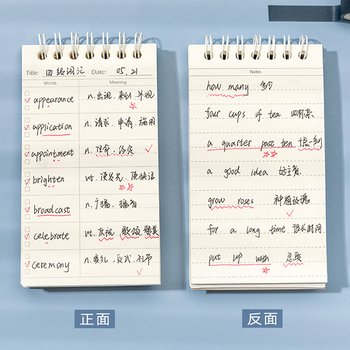 Title: 四级词汇 Date: 05.21
Words Meaning
appearance n. 出现
application n. 请求 申请 运用
appointment n.
brighten vt.
broadcast n. 广播
celebrate vt. 庆祝 歌颂 赞美
ceremony n. 典礼 仪式 礼节
正面
Notes
how many 多少
four cups of tea 四杯茶
a quarter past ten 十点一刻
a good idea 好主意
grow roses 种植玫瑰
for a long time 很长时间
put up with 忍受
反面